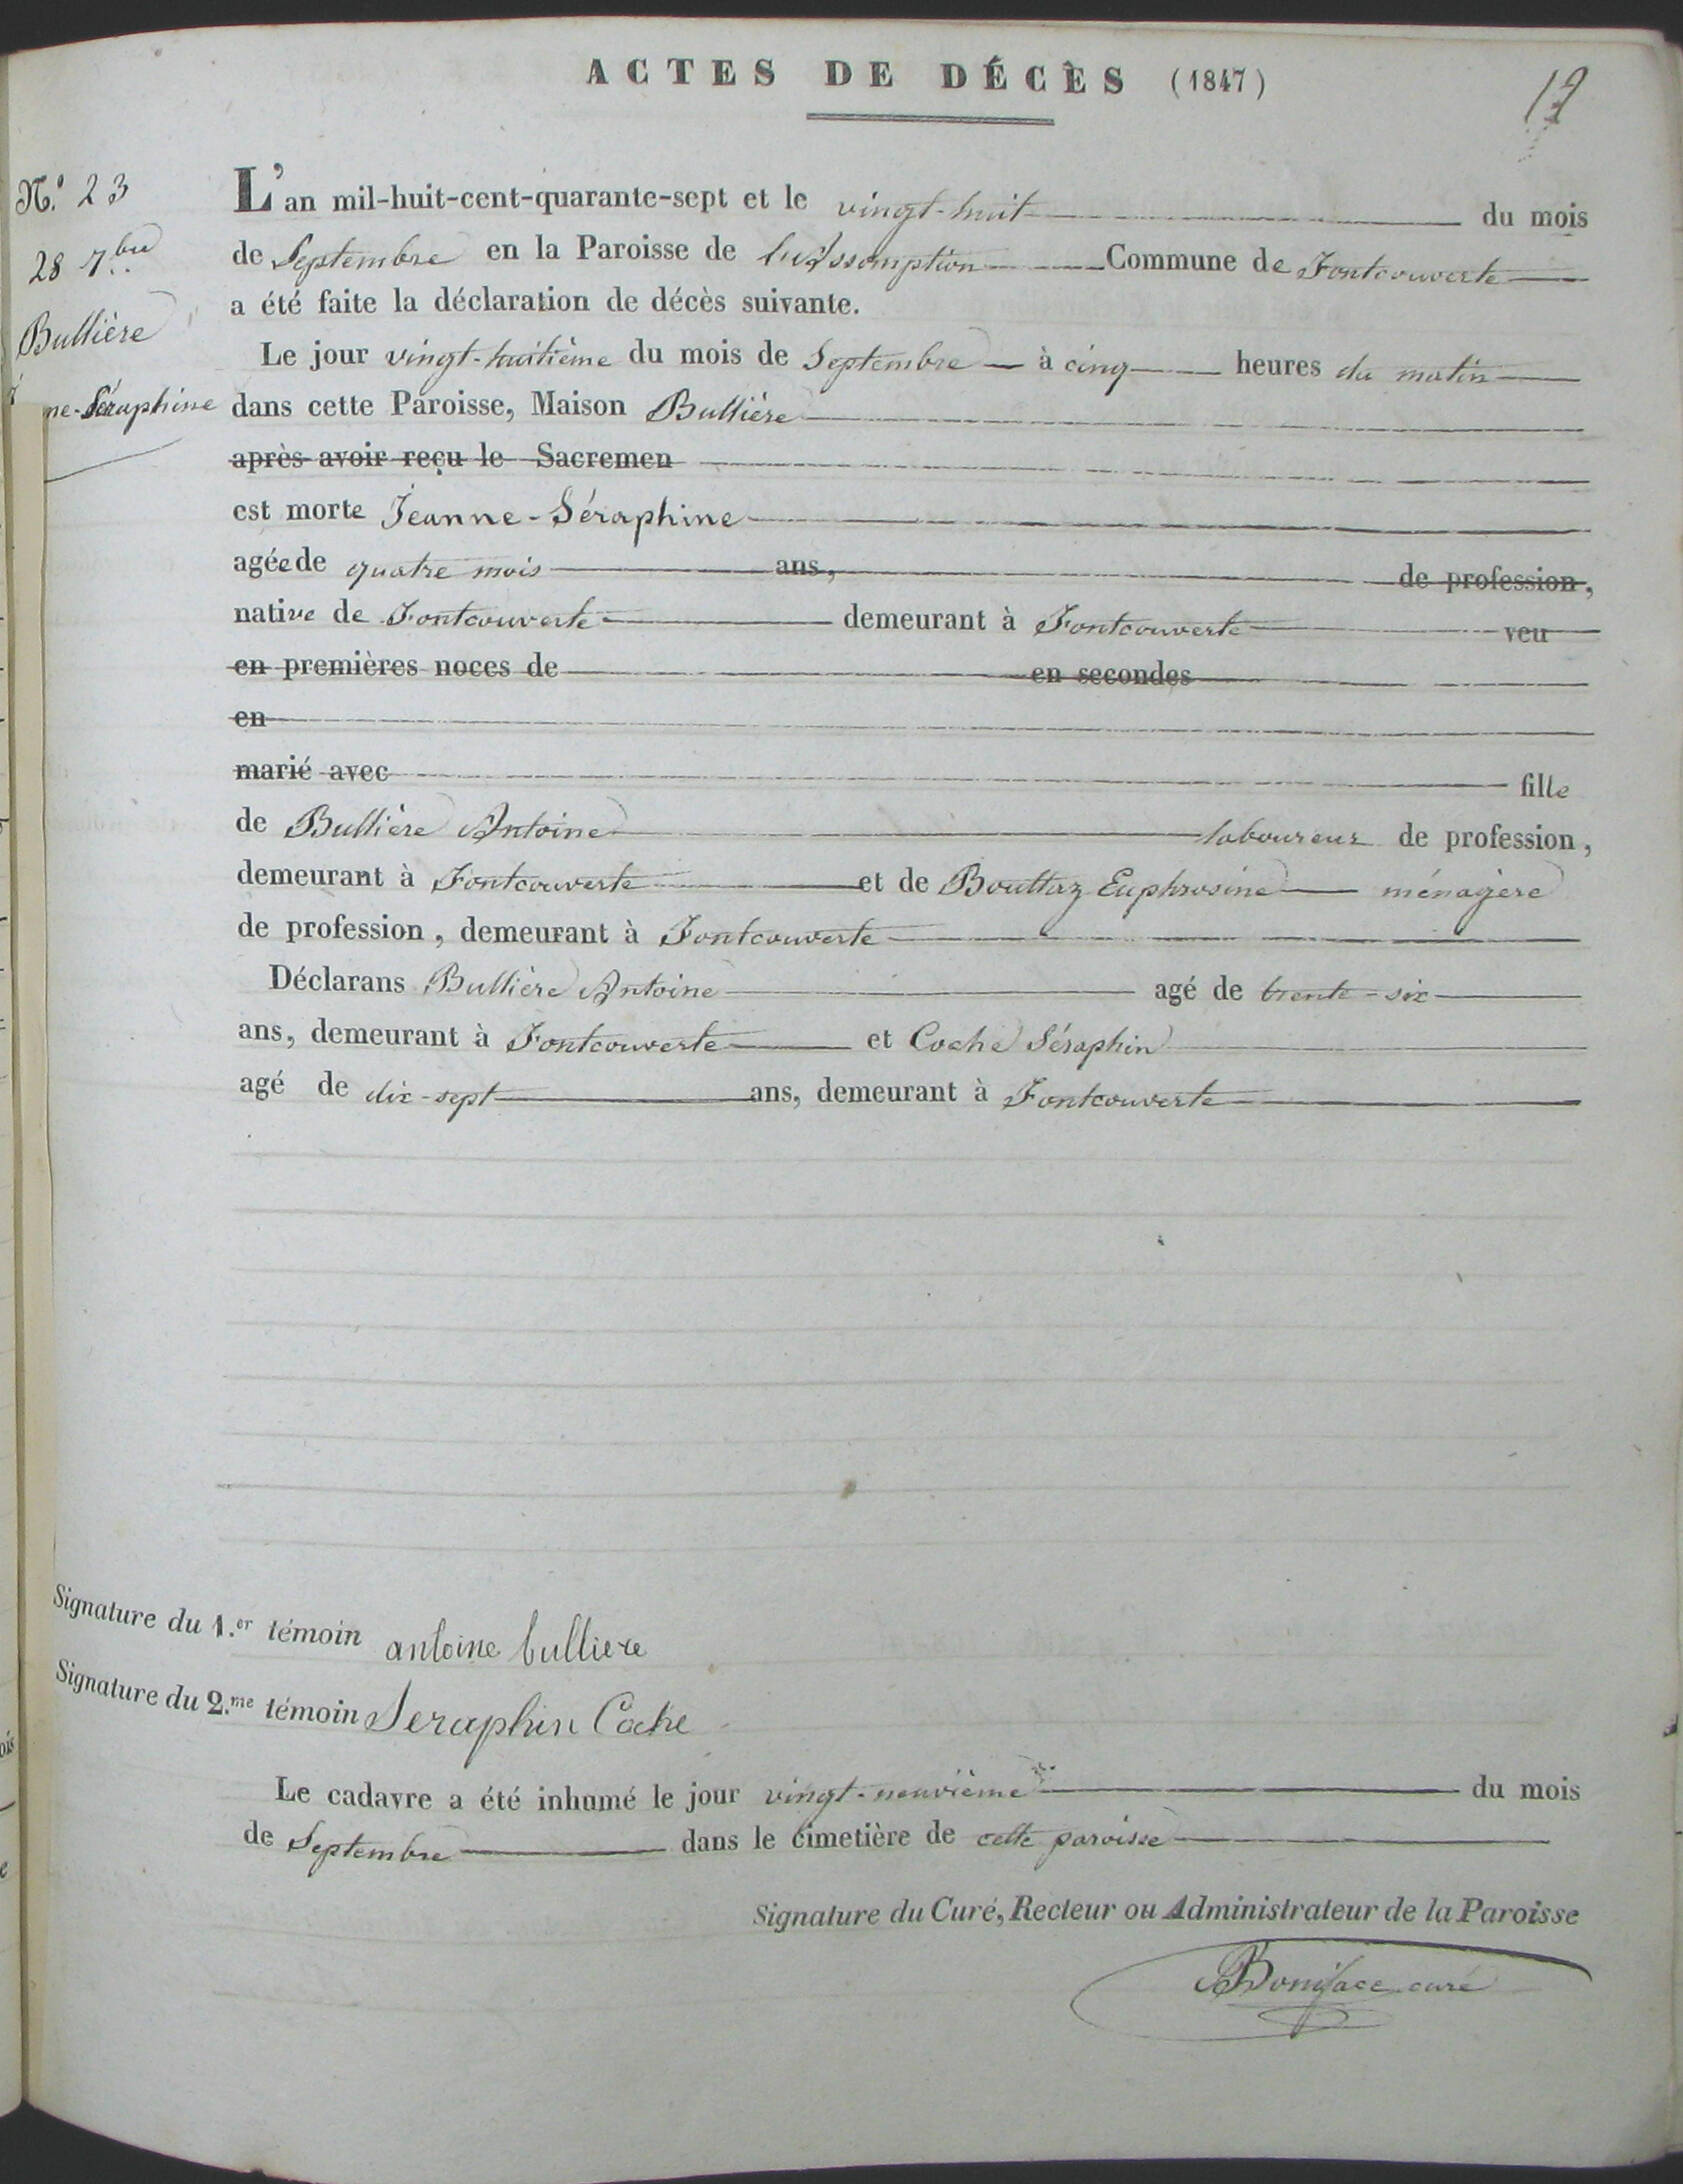 ACTES DE DÉCÈS (1847)
12
N.º 23
28 7.bre
Bullière
ne-Séraphine
L'an mil-huit-cent-quarante-sept et le vingt-huit du mois
de Septembre en la Paroisse de l'Assomption Commune de Fontcouverte
a été faite la déclaration de décès suivante.
Le jour vingt-huitième du mois de Septembre à cinq heures du matin
dans cette Paroisse, Maison Bullière
après avoir reçu le Sacremen
est morte Jeanne-Séraphine
agée de quatre mois ans, de profession,
native de Fontcouverte demeurant à Fontcouverte veu
en premières noces de en secondes
en
marié avec fille
de Bullière Antoine laboureur de profession,
demeurant à Fontcouverte et de Bouttaz Euphrosine ménagère
de profession, demeurant à Fontcouverte
Déclarans Bullière Antoine agé de trente-six
ans, demeurant à Fontcouverte et Coche Séraphin
agé de dix-sept ans, demeurant à Fontcouverte
Signature du 1.er témoin antoine bulliere
Signature du 2.me témoin Seraphin Coche
Le cadavre a été inhumé le jour vingt-neuvième du mois
de Septembre dans le cimetière de cette paroisse
Signature du Curé, Recteur ou Administrateur de la Paroisse
Boniface curé